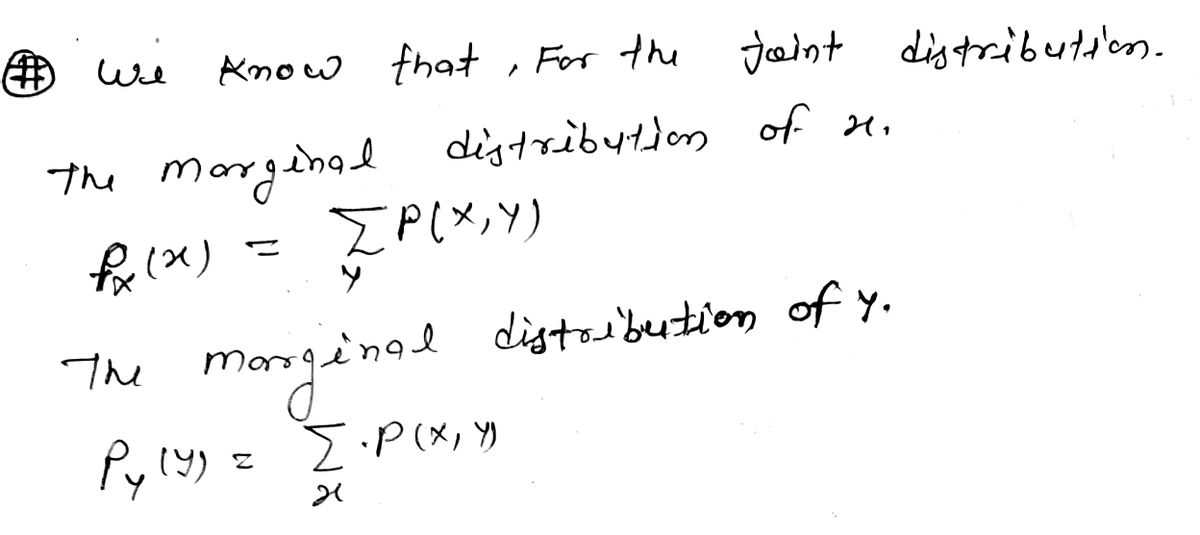 # We know that, For the joint distribution.
The marginal distribution of x.
Pₓ(x) = Σ P(X,Y)
y
The marginal distribution of y.
P_Y(y) = Σ .P(X, Y)
x